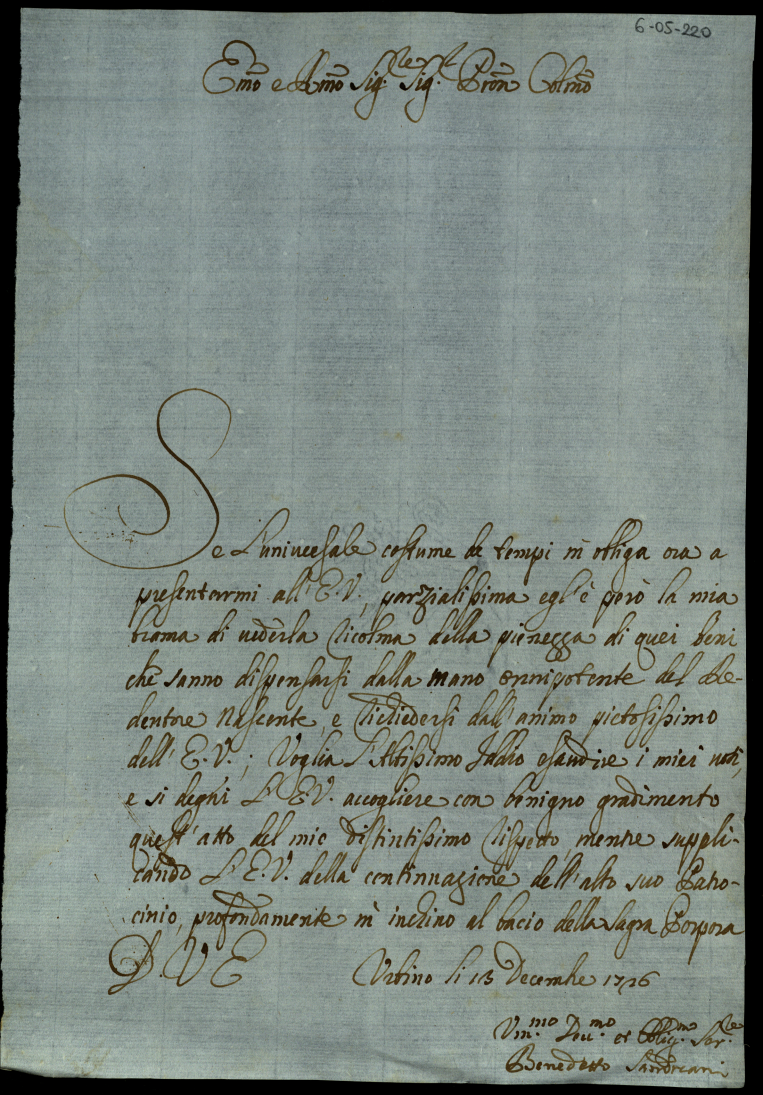 6-05-220
Emo e Rmo Sig.re Sig. Pron Colmo
Se l'universale costume de tempi m'obliga ora a
presentarmi all'E.V., parzialissima egl'è però la mia
brama di vederla ricolma della pienezza di quei beni
che sanno dispensarsi dalla mano onnipotente del Re-
dentore Nascente, e richiedersi dall'animo pietosissimo
dell'E.V.; Voglia l'Altissimo Iddio esaudire i miei voti,
e si degni L'E.V. accogliere con benigno gradimento
quest'atto del mio distintissimo rispetto, mentre suppli-
cando L'E.V. della continuazione dell'alto suo Patro-
cinio, profondamente m'inchino al bacio della Sagra Porpora
D. V E Urbino li 13 Decembre 1726
Um.mo Deu.mo et Oblig.mo Ser.re
Benedetto